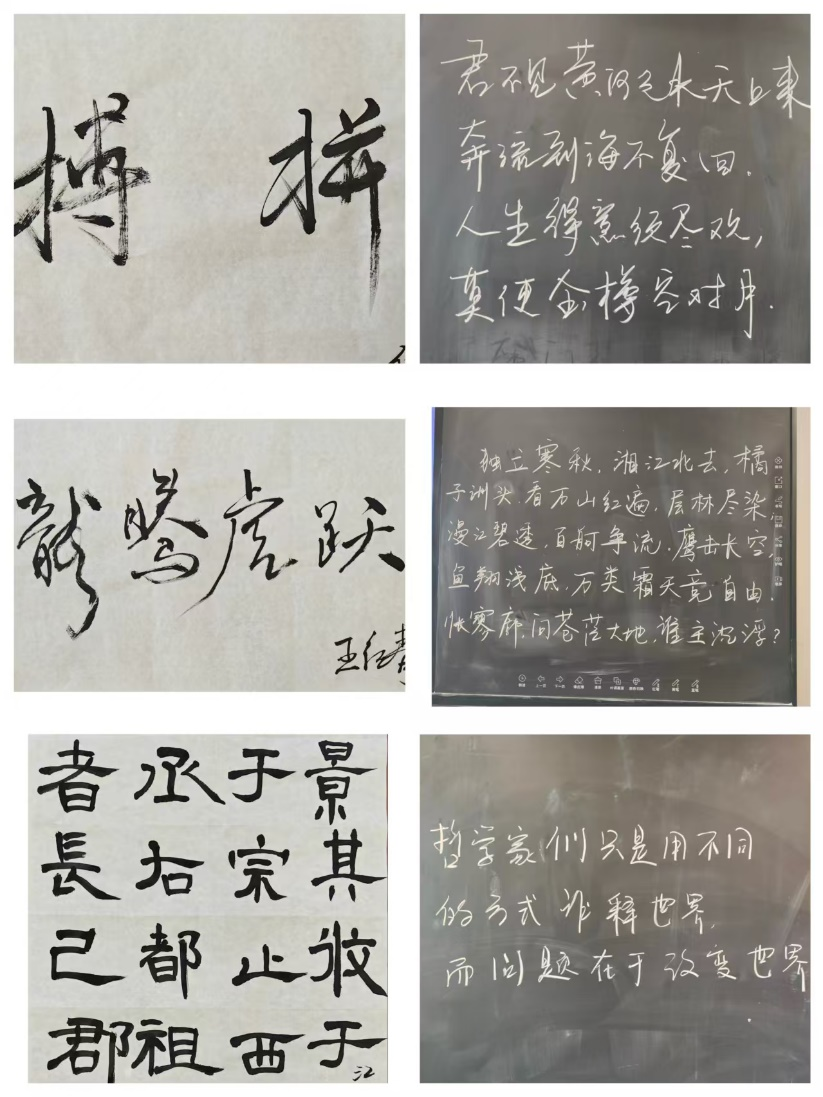 搏拼
君不见黄河之水天上来
奔流到海不复回.
人生得意须尽欢,
莫使金樽空对月.
龍騰虎跃
王红
独立寒秋,湘江北去,橘
子洲头.看万山红遍,层林尽染,
漫江碧透,百舸争流.鹰击长空,
鱼翔浅底,万类霜天竞自由.
怅寥廓,问苍茫大地,谁主沉浮?
上一页 下一页
景其收于
于宗止西
丞右都祖
者長己郡
哲学家们只是用不同
的方式诠释世界,
而问题在于改变世界